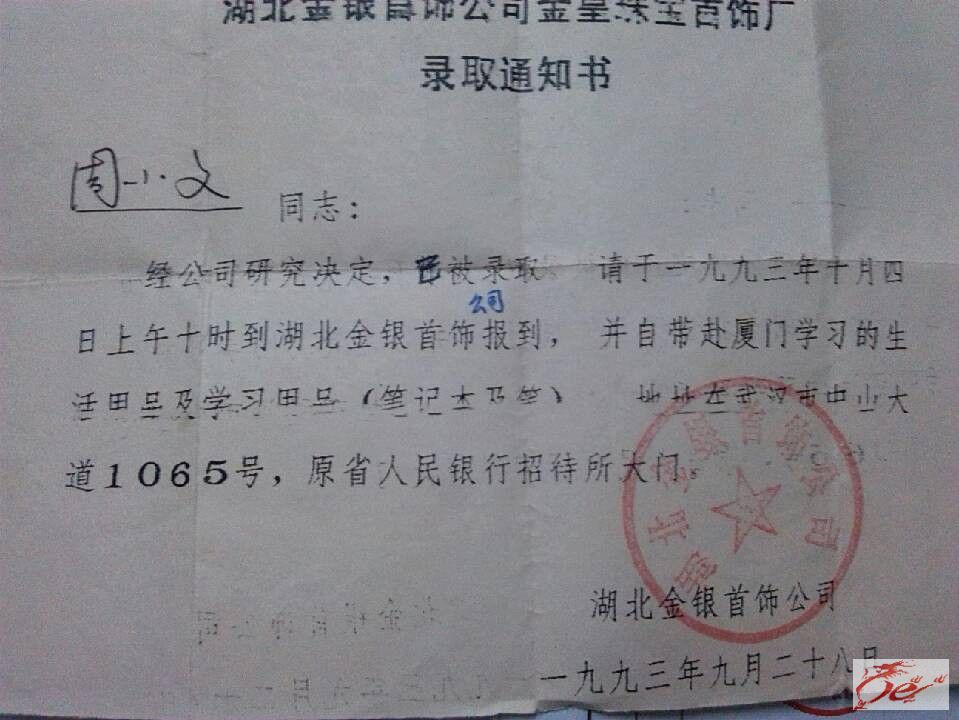 湖北金银首饰公司金皇珠宝首饰厂
录取通知书
周小文 同志：
经公司研究决定，已被录取 请于一九九三年十月四
公司
日上午十时到湖北金银首饰报到， 并自带赴厦门学习的生
活用品及学习用品（笔记本及笔） 地址在武汉市中山大
道1065号，原省人民银行招待所大门。
湖北金银首饰公司
湖北金银首饰公司
一九九三年九月二十八日